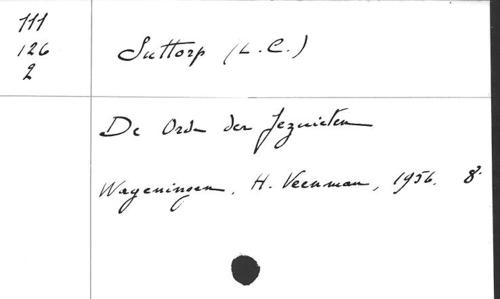 111
126
2
Suttorp (L.C.)
De Orde der Jezuieten
Wageningen, H. Veenman, 1956. 8°